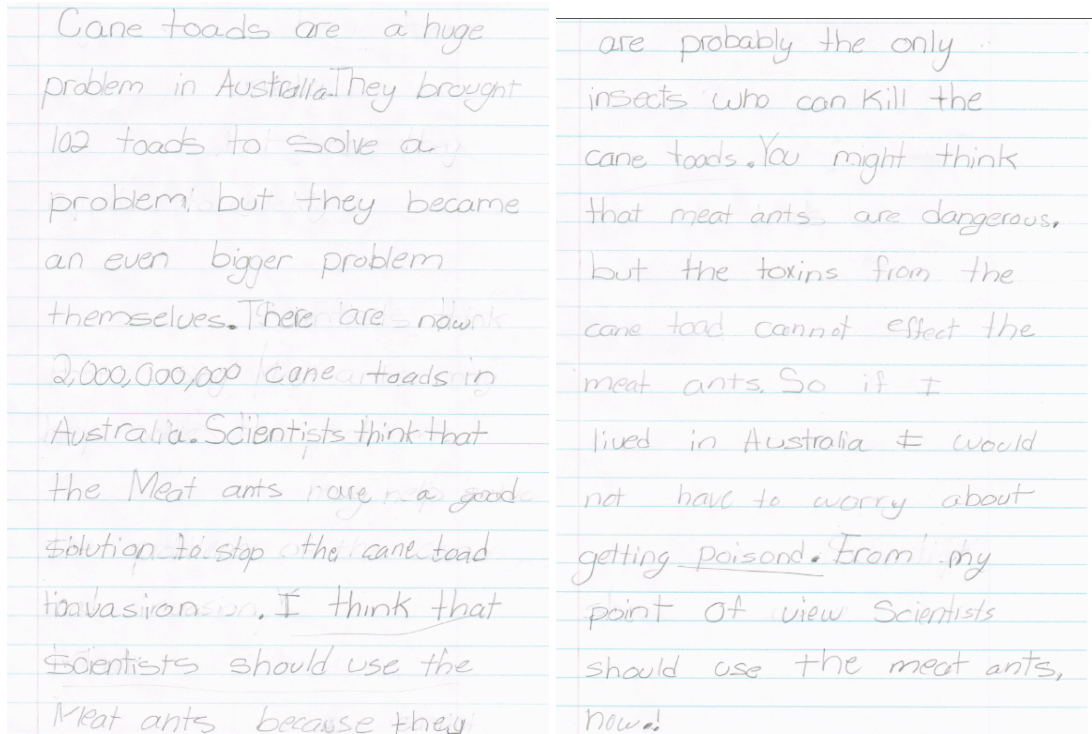 Cane toads are a huge
problem in Australia. They brought
102 toads to solve a
problem, but they became
an even bigger problem
themselves. There are now
2,000,000,000 cane toads in
Australia. Scientists think that
the Meat ants are a good
solution to stop the cane toad
invasion. I think that
scientists should use the
Meat ants because they
are probably the only
insects who can kill the
cane toads. You might think
that meat ants are dangerous.
but the toxins from the
cane toad cannot effect the
meat ants. So if I
lived in Australia I would
not have to worry about
getting poisond. From my
point of view Scientists
should use the meat ants,
now!